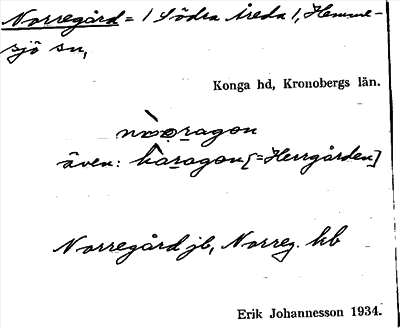 Norregård = / Södra Åreda /, Hemme-
sjö sn,
Konga hd, Kronobergs län.
även: haragon [= Herrgården]
Norregård jb, Norreg. kb
Erik Johannesson 1934.